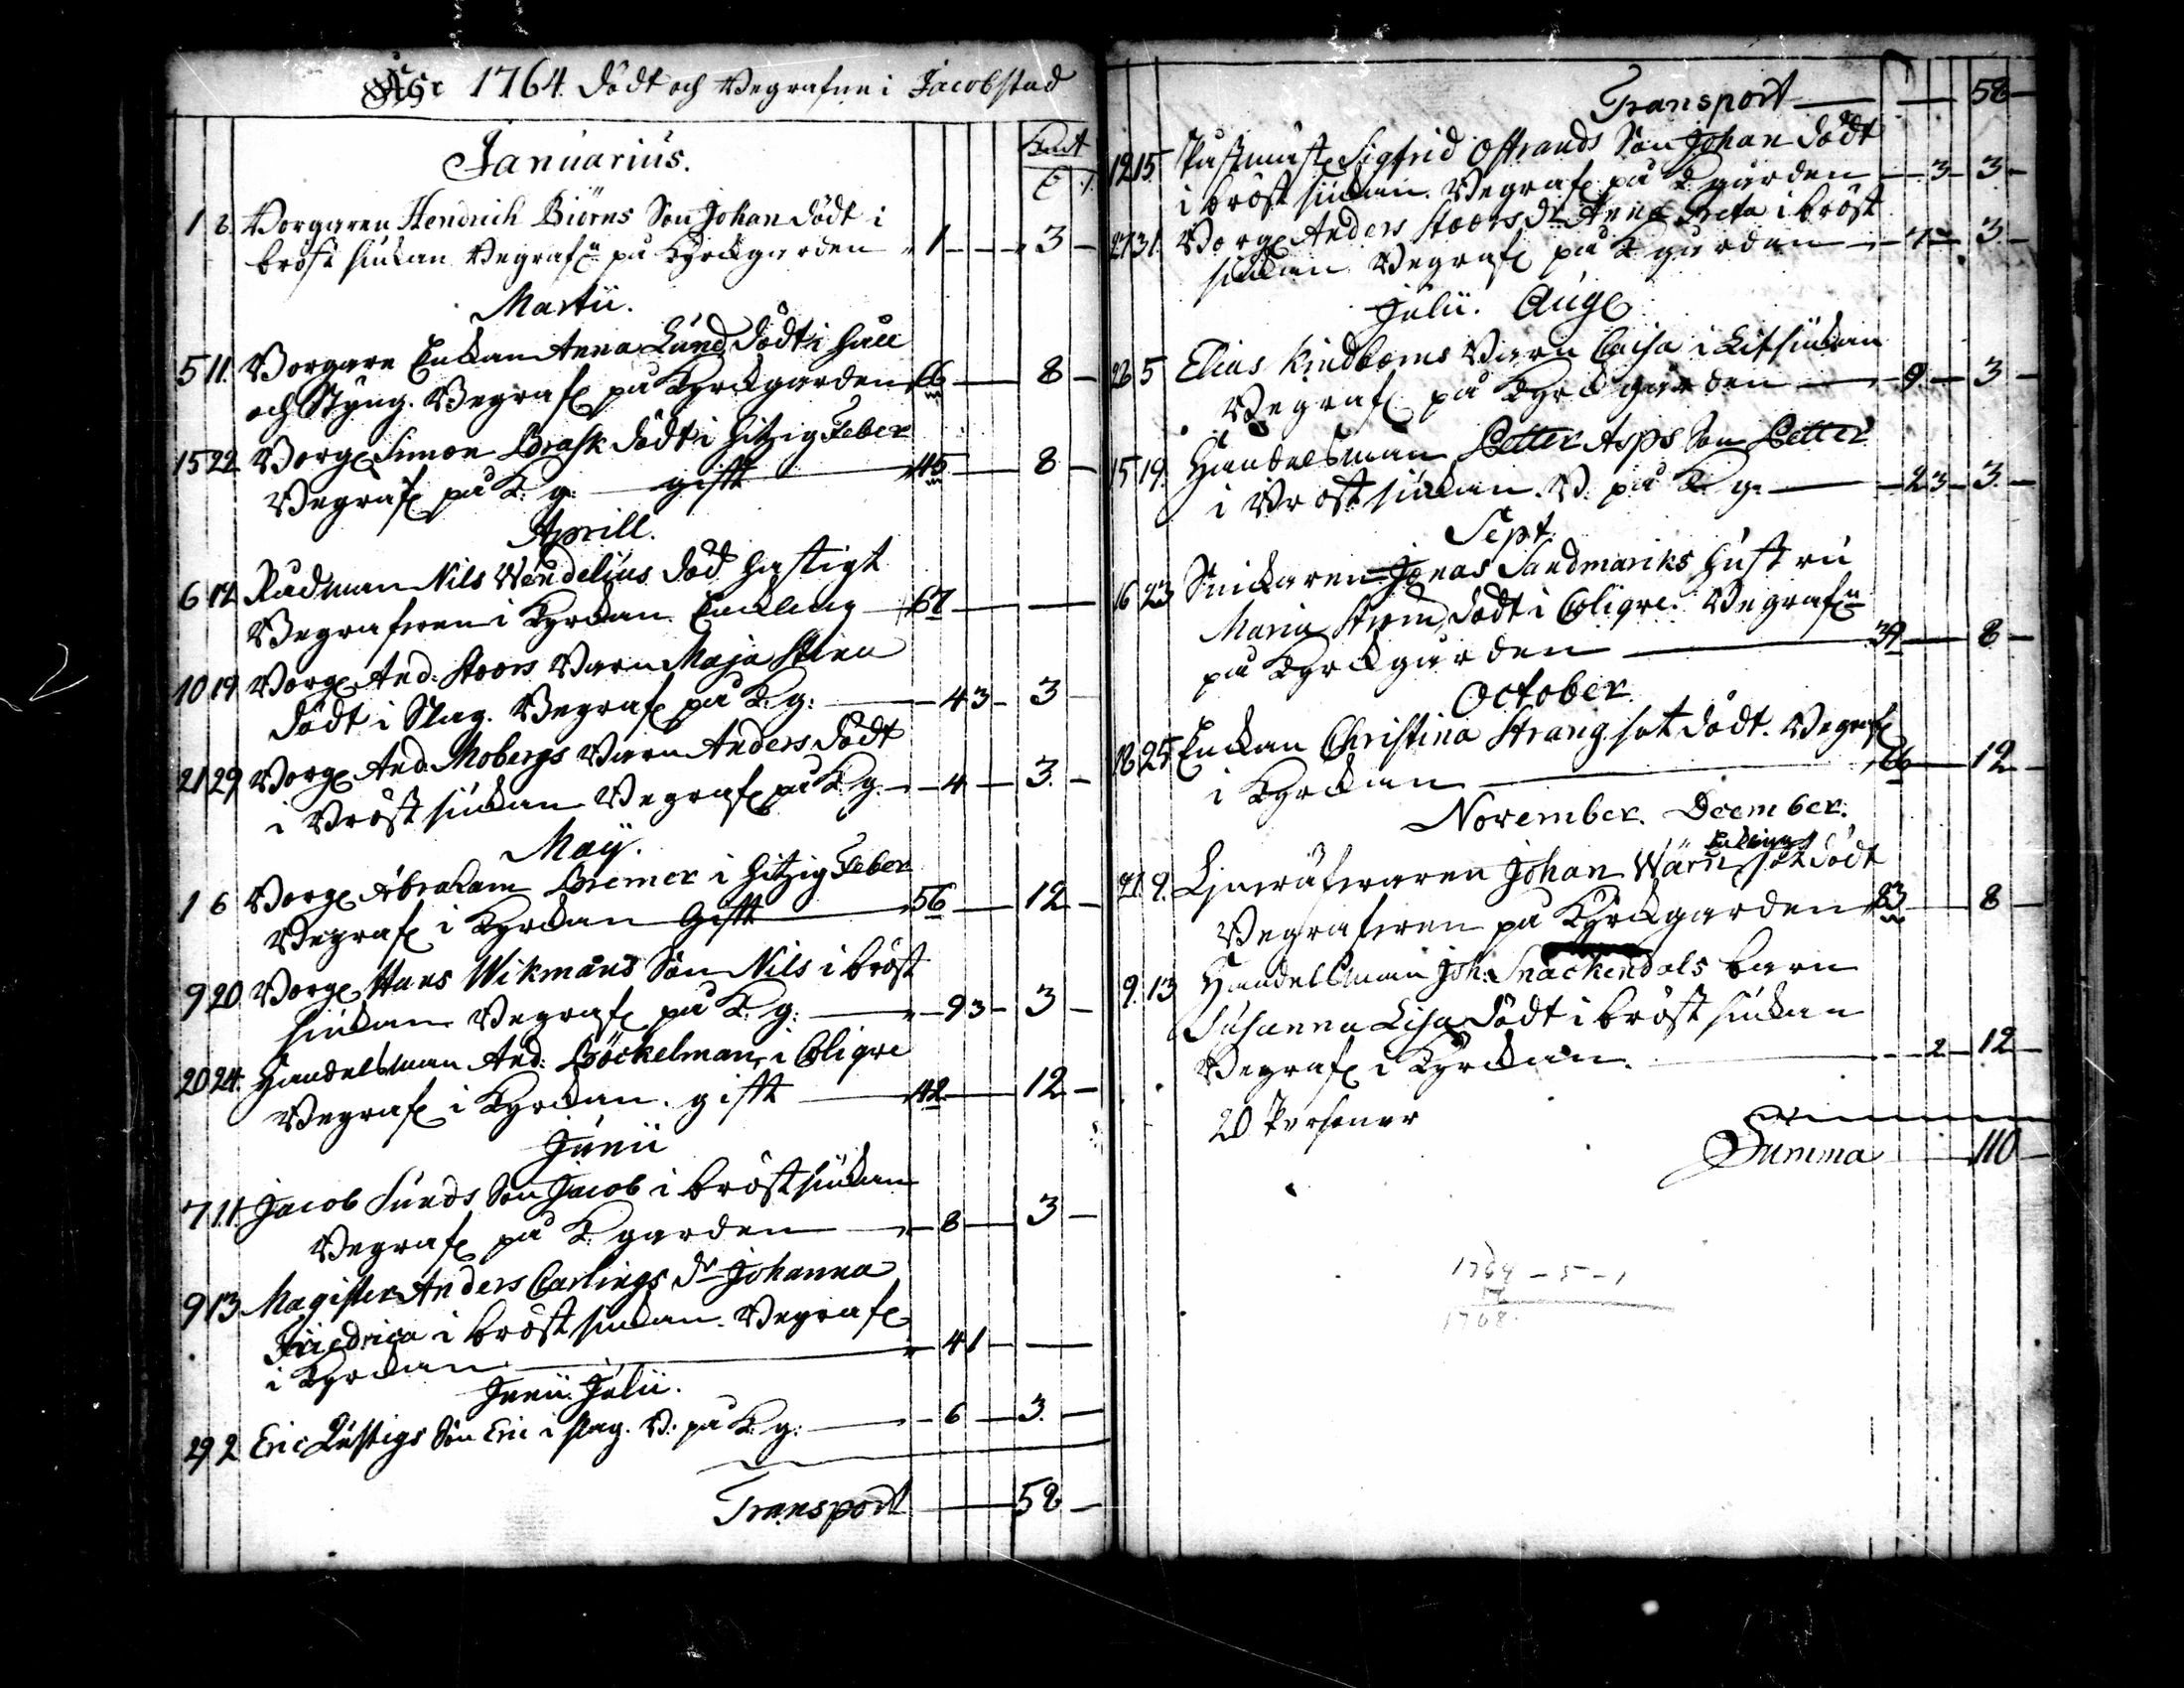 År 1764 dödt och Begrafne i Jacobstad
Januarius.
1 8. Borgaren Hendrich Biörns Son Johan dödt i
bröst siukan Begrafn på Kyrckgården 1 — 3 —
Martii.
5 11. Borgare Enckan Anna Lund, dödt i håll
och Styng. Begraf på Kyrckgården 66 — 8 —
15 22 Borg Simon Brask dödt i hitzig Feber
Begraf på K. g: gift 45 — 8 —
Aprill.
6 12 Rådman Nils Wendelius död hastigt
Begrafven i Kyrckan Enckling 67 — —
10 19. Borg And: Stoors Barn Maja Stina
dödt i Slag. Begraf på K: g: — 4 3 — 3
21 29 Borg And. Mobergs Barn Anders dödt
i Bröst siukan Begraf på K: g. — 4 — 3. —
Maij.
1 6 Borg Abraham Bremer i hitzig Feber
Begraf i Kyrckan Gift 56 — 12 —
9 20 Borg Hans Wikmans Son Nils i bröst
siukan Begraf på K: g: — 9 3 — 3 —
20 24. Handelsman And: Böckelman, i Coliqve
Begraf i Kyrckan. gift 42 — 12 —
Junii
7 11 Jacob Sunds Son Jacob i bröst siukan
Begraf på K: garden — 8 — 3 —
9 13 Magister Anders Carlings dr Johanna
Friedrica i bröst siukan. Begraf
i Kyrckan — 4 1 — —
Junii. Julii.
29 2 Eric Lustigs Son Eric i slag. B: på K: g: — 6 — 3. —
Transport — 58 —
Transport — 58 —
12 15. Sigfrid Östrands Son Johan dödt
i bröst siukan. Begraf på K: gården — 3 — 3 —
27 31. Borg Anders Stoors dr Anna Greta i bröst
siukan Begraf på K. gården — 7 — 3 —
Julii. Aug
28 5 Elias Kindboms Barn Caisa i siukan
Begraf på Kyrckgården — 9 — 3 —
15 19. Handelsman Petter Asps Son Petter
i Bröst siukan. B. på K: g. — 2 3 — 3. —
Sept.
16 23 Snickaren Jonas Sandmarks hustru
Maria Ström, dödt i Coliqve. Begrafn
på Kyrckgården — 39 — 8 —
October.
18 25 Enckan Christina Strang sot dödt. Begraf
i Kyrckan — 66 — 12 —
November. December.
Enckling
27. 9. Johan Wärn, sot dödt
Begrafven på Kyrckgården 83 — 8 —
9. 13 Handelsman Joh: Snackendals barn
Susanna Lisa dödt i bröst siukan
Begraf i Kyrckan. — 2 — 12 —
20 Personer
Summa — 110 —
1764 - 5 - 1
1768.